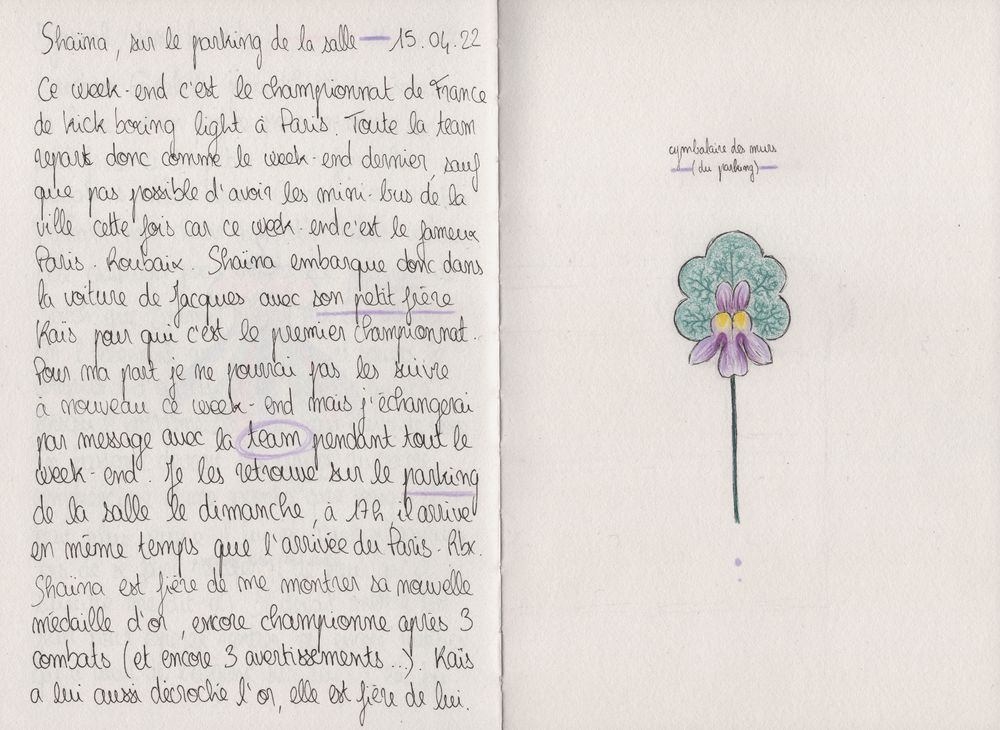 Shaïna, sur le parking de la salle — 15.04.22
Ce week-end c'est le championnat de France
de kick boxing light à Paris. Toute la team
repart donc comme le week-end dernier, sauf
que pas possible d'avoir les mini-bus de la
ville cette fois car ce week-end c'est le fameux
Paris-Roubaix. Shaïna embarque donc dans
la voiture de Jacques avec son petit frère
Kaïs pour qui c'est le premier championnat.
Pour ma part je ne pourrai pas les suivre
à nouveau ce week-end mais j'échangerai
par message avec la team pendant tout le
week-end. Je les retrouve sur le parking
de la salle le dimanche, à 17h, il arrive
en même temps que l'arrivée du Paris-Rbx.
Shaïna est fière de me montrer sa nouvelle
médaille d'or, encore championne après 3
combats (et encore 3 avertissements...). Kaïs
a lui aussi décroché l'or, elle est fière de lui.
cymbalaire des murs
(du parking)